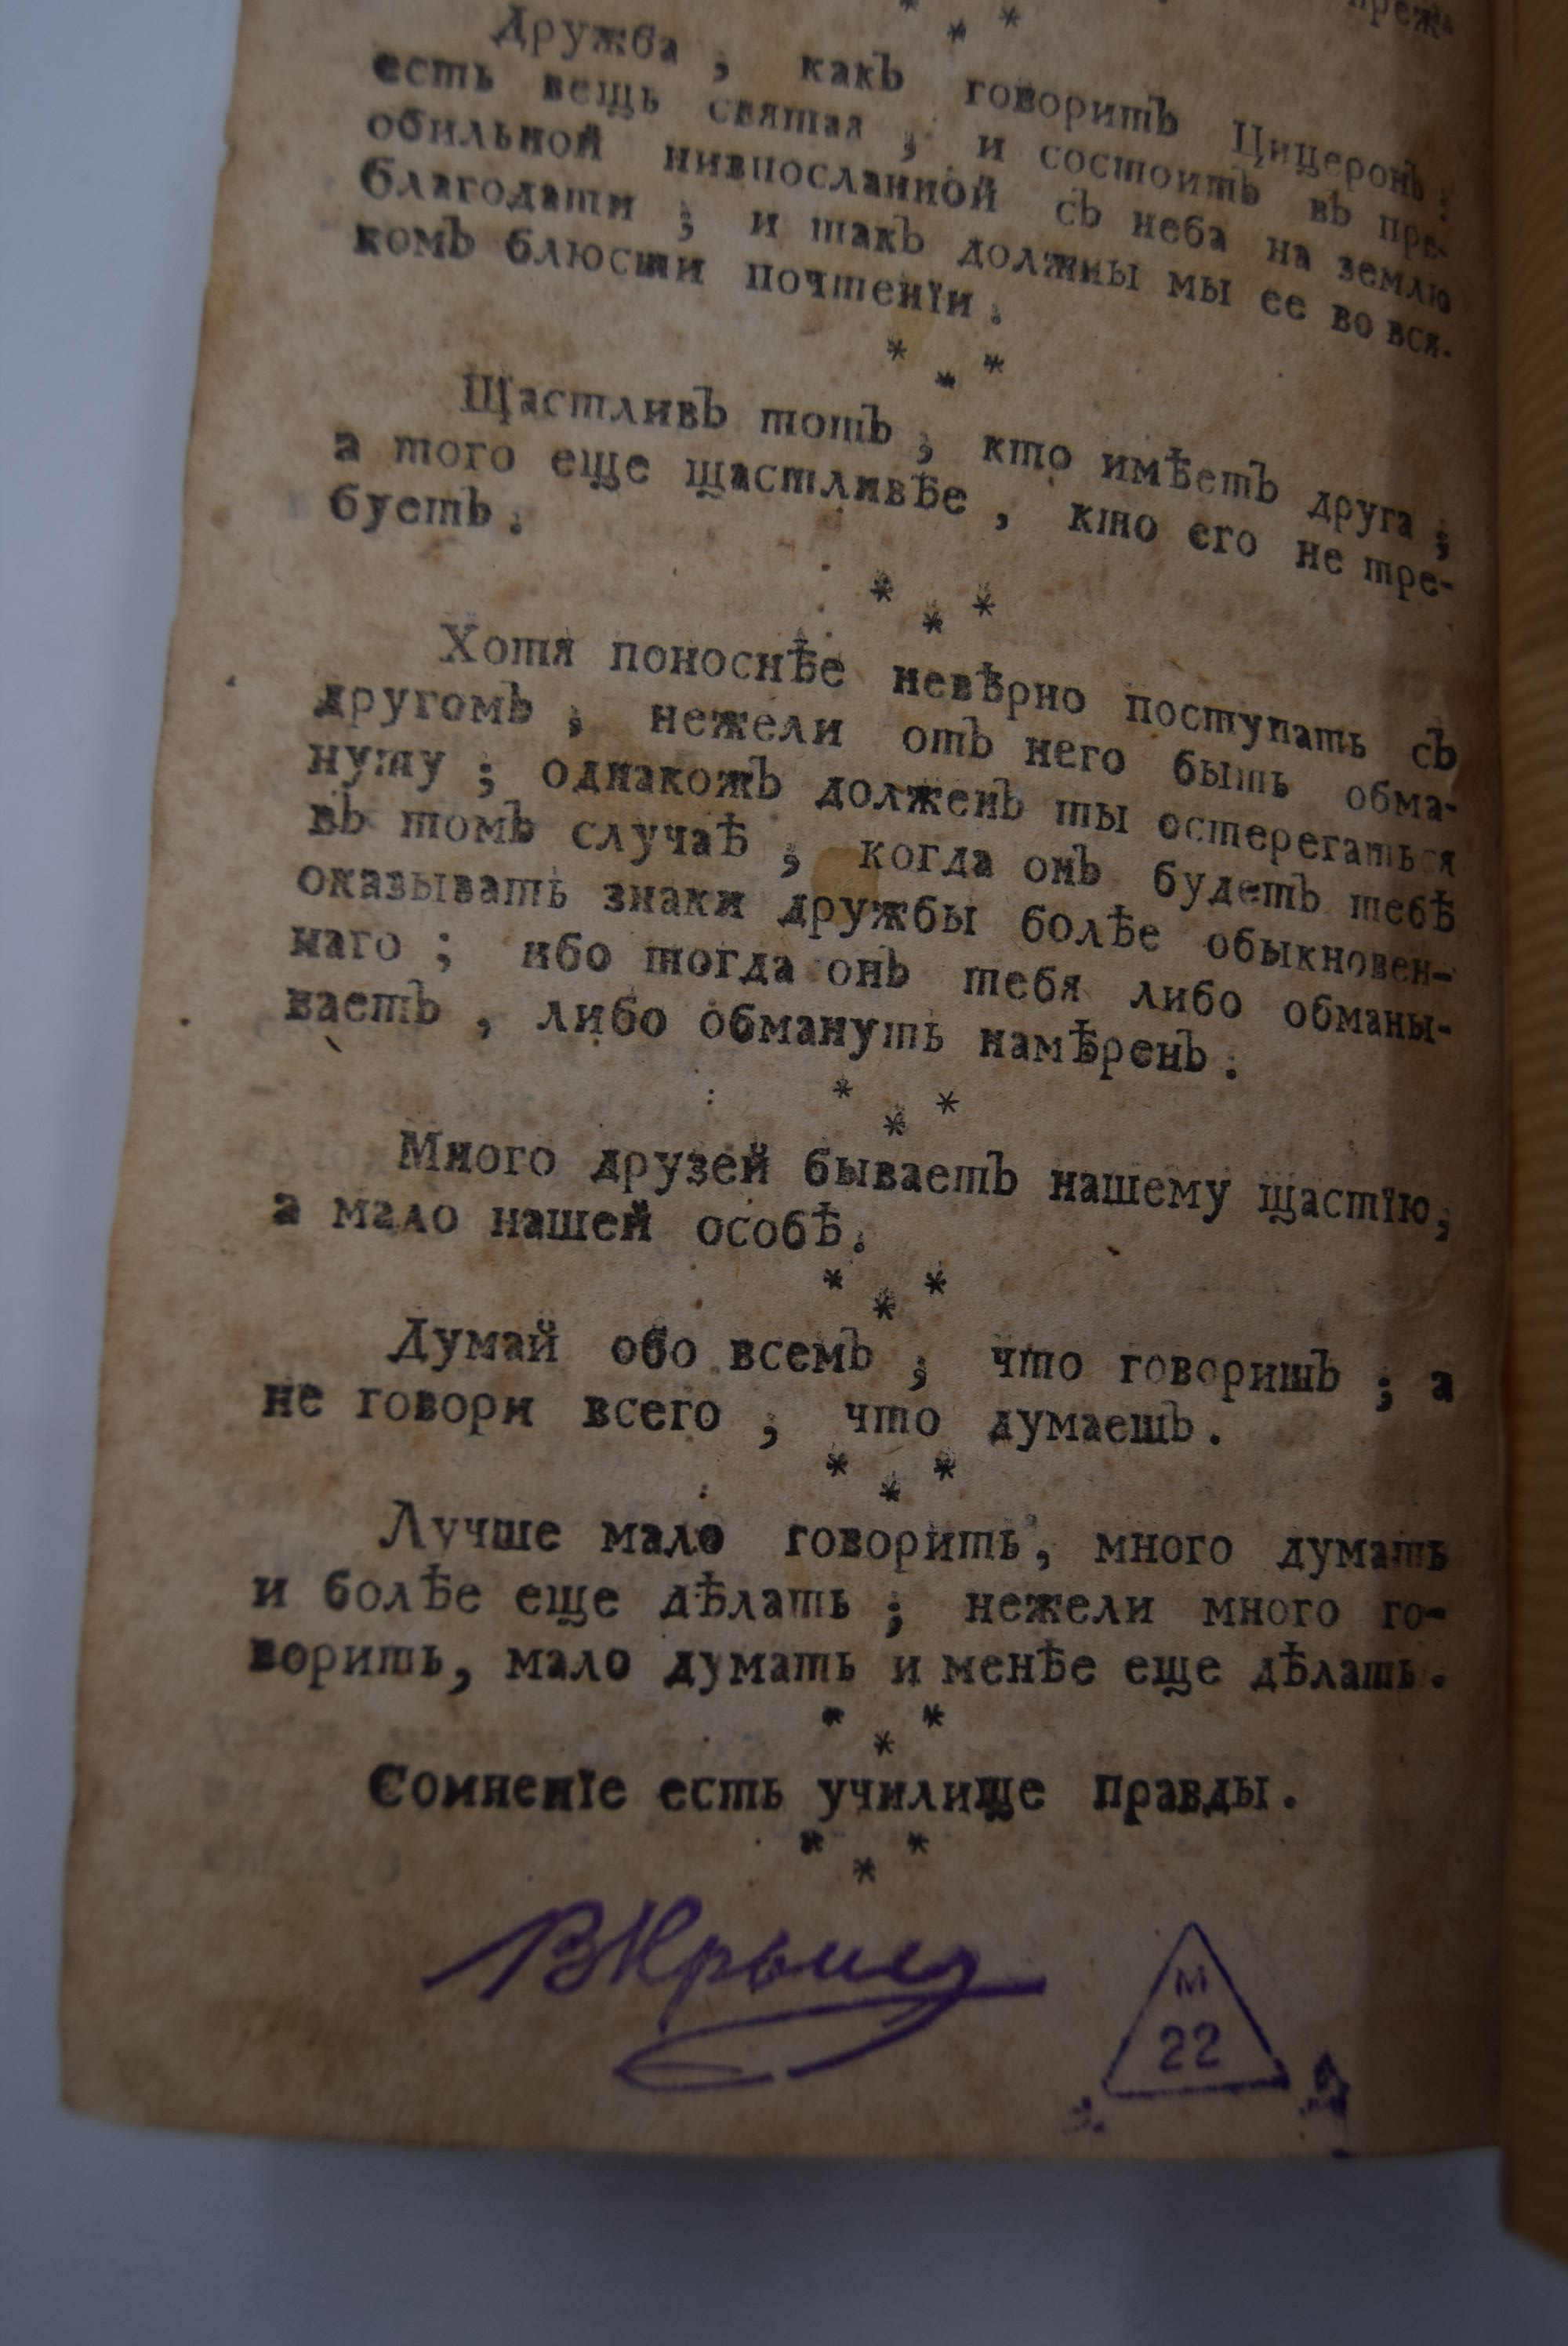 преж-
* * *
Дружба, какъ говоритъ Цицеронъ,
есть вещь святая, и состоитъ въ пре-
обильной низпосланной съ неба на землю
благодати; и такъ должны мы ее во вся-
комъ блюсти почтенїи.
* * *
Щастливъ тотъ, кто имѣетъ друга;
а того еще щастливѣе, кто его не тре-
буетъ.
* * *
Хотя поноснѣе невѣрно поступать съ
другомъ, нежели отъ него быть обма-
нуту; однакожъ долженъ ты остерегаться
въ томъ случаѣ, когда онъ будетъ тебѣ
оказывать знаки дружбы болѣе обыкновен-
наго; ибо тогда онъ тебя либо обманы-
ваетъ, либо обмануть намѣренъ.
* * *
Много друзей бываетъ нашему щастїю,
а мало нашей особѣ.
* * *
Думай обо всемъ, что говоришъ; а
не говори всего, что думаешъ.
* * *
Лучше мало говорить, много думать
и болѣе еще дѣлать; нежели много го-
ворить, мало думать и менѣе еще дѣлать.
* * *
Сомненїе есть училище правды.
* * *
М
22